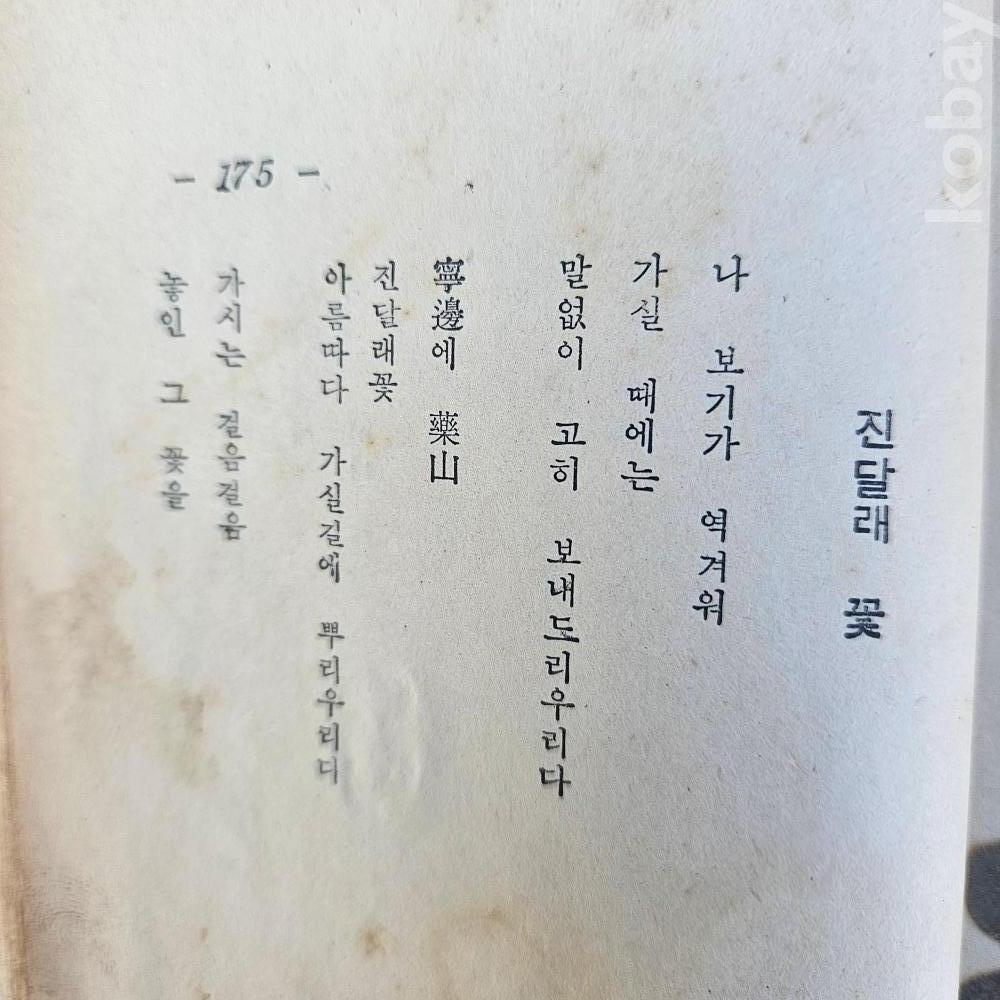 진달래 꽃
나 보기가 역겨워
가실 때에는
말없이 고히 보내드리우리다
寧邊에 藥山
진달래꽃
아름따다 가실길에 뿌리우리디
가시는 걸음걸음
놓인 그 꽃을
- 175 -
kobay